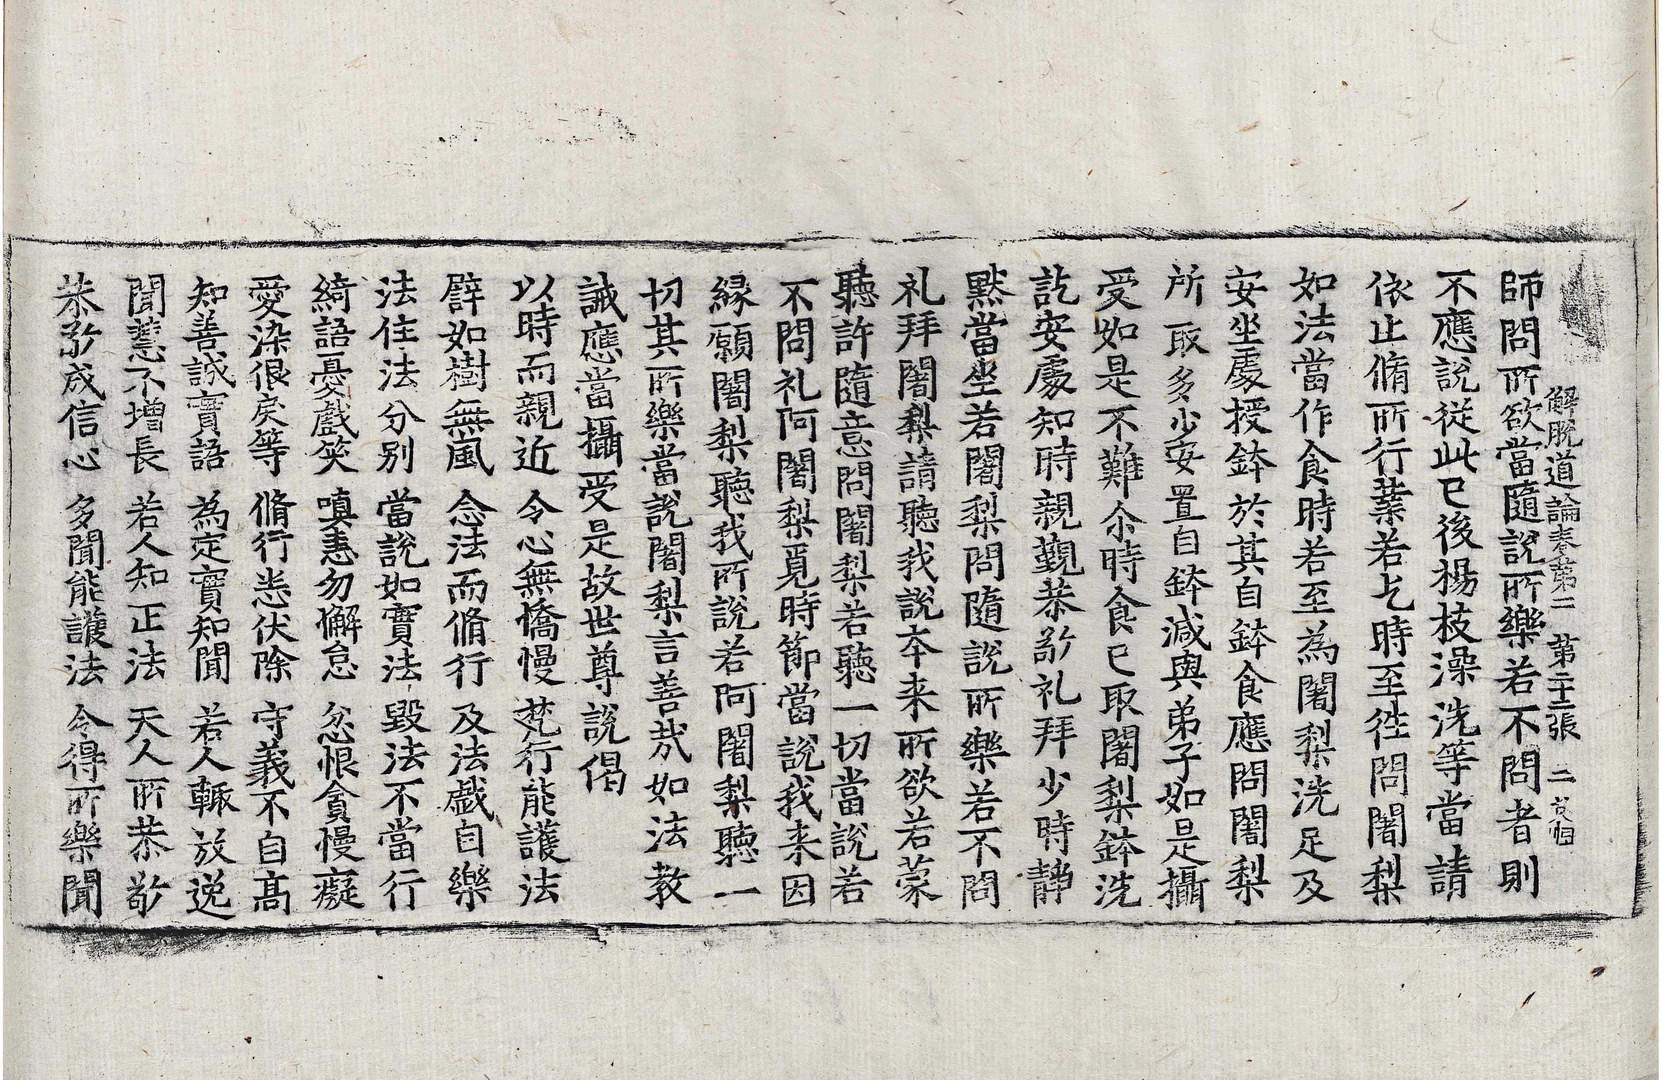 解脫道論卷第二 第二十二張 二
師問所欲當隨說所樂若不問者則
不應說從此已後揚枝澡洗等當請
依止脩所行行業若乞時至徃問闍梨
如法當作食時若至為闍梨洗足及
安坐處授鉢於其自鉢食應問闍梨
所取多少安置自鉢減與弟子如是攝
受如是不難尒時食已取闍梨鉢洗
訖安處知時親覲恭敬礼拜少時靜
黙當坐若闍梨問隨說所樂若不問
礼拜闍梨請聽我說本来所欲若蒙
聽許隨意問闍梨若聽一切當說若
不問礼阿闍梨覓時節當說我来因
縁願闍梨聽我所說若阿闍梨聽一
切其所樂當說闍梨言善㢤如法教
誡應當攝受是故世尊說偈
以時而親近 令心無憍慢 梵行能護法
譬如樹無嵐 念法而脩行 及法戲自樂
法住法分别 當說如實法 毀法不當行
綺語憂戲笑 嗔恚勿懈怠 忿恨貪慢癡
愛染佷戾等 脩行恙伏除 守義不自髙
知善誠實語 為定實知聞 若人輙放逸
聞慧不增長 若人知正法 天人所恭敬
恭敬成信心 多聞能護法 令得所樂聞